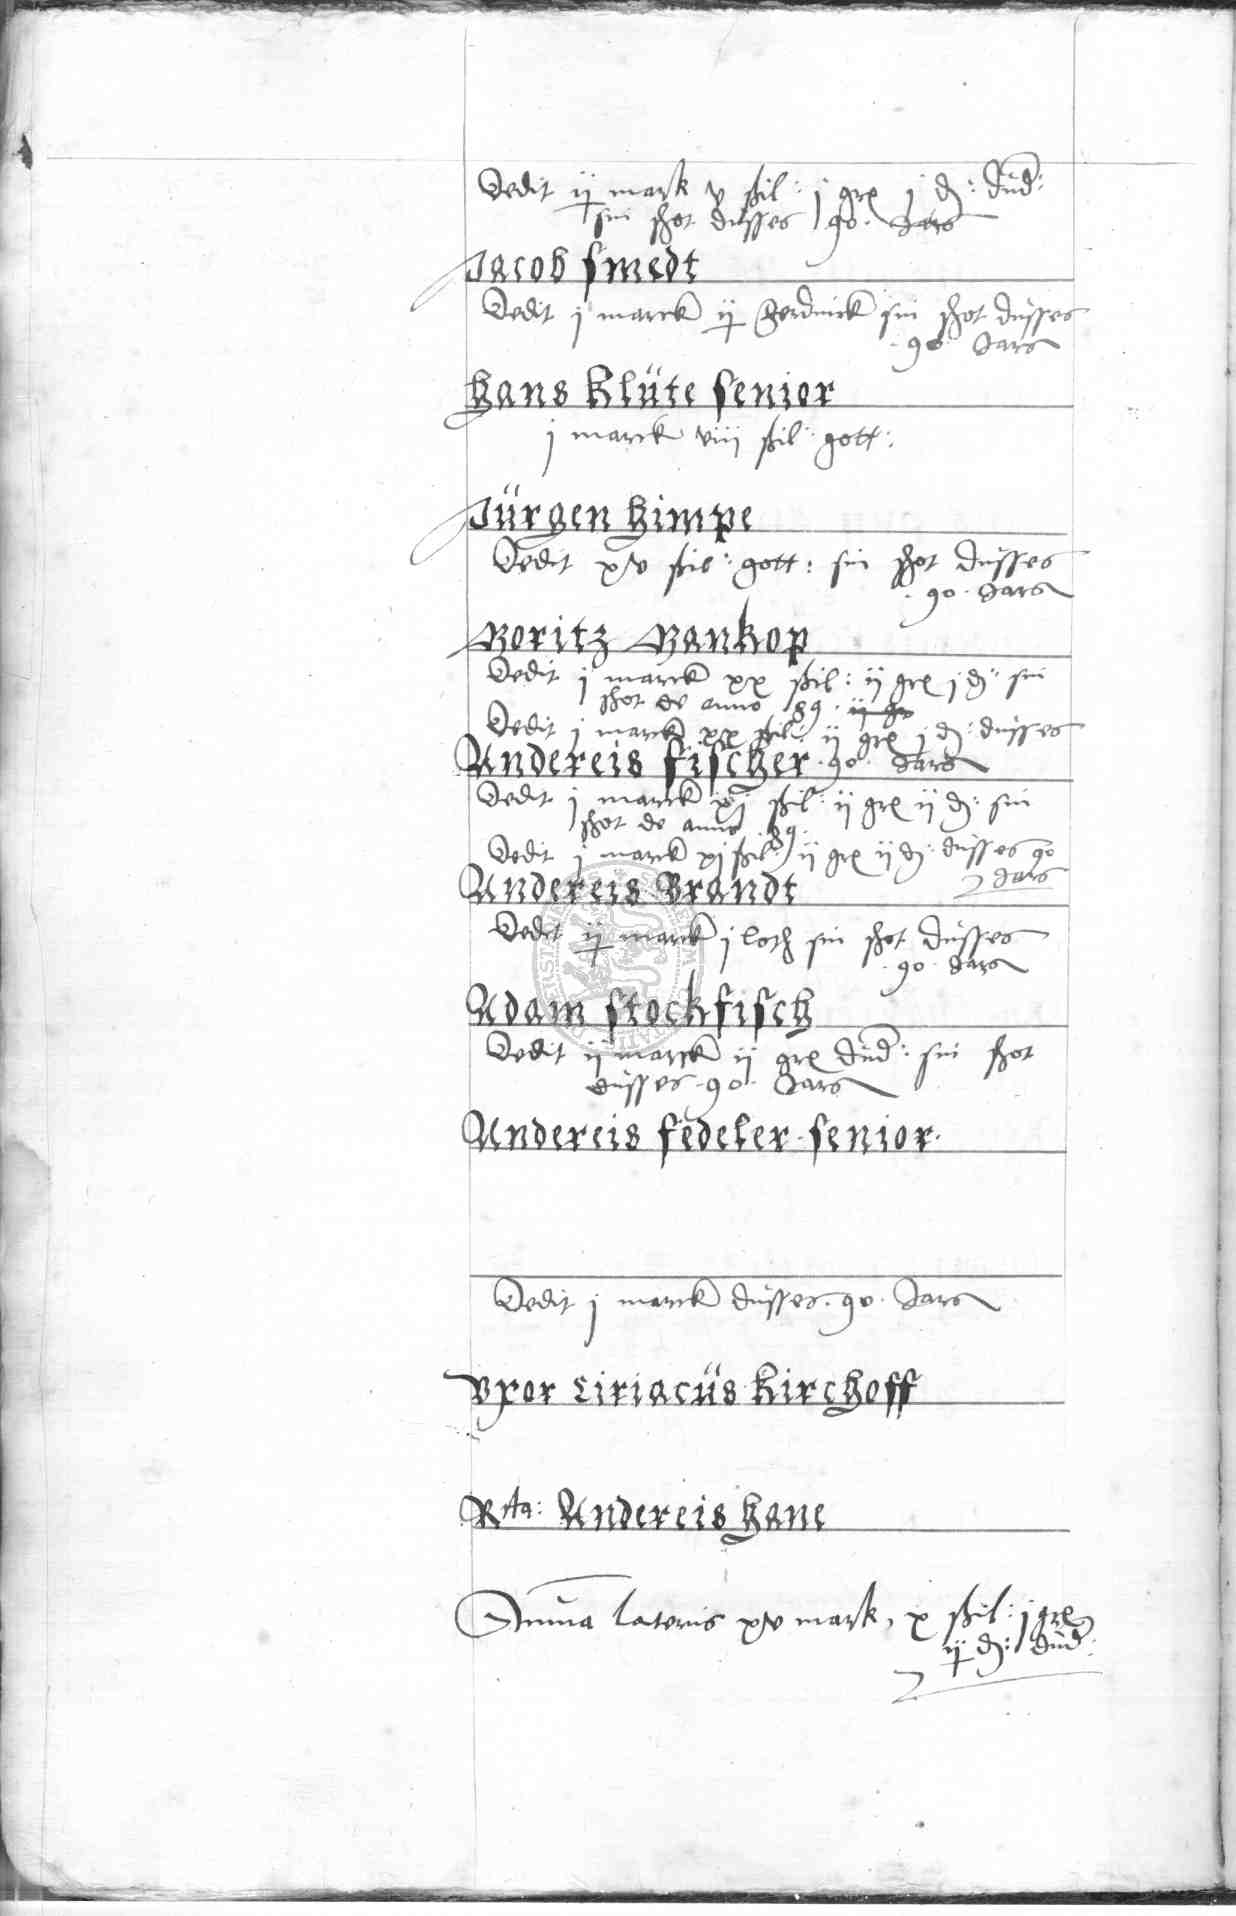 Dedit ij mark v ßil: j grx j d: düd:
sin shot düsses 90. Jars
Jacob smedt
Dedit j marck ij ferdinck sin shot düsses
90 Jars
Hans Klüte senior
j marck viij ßil: gott:
Jürgen Himpe
Dedit xv ßil: gott: sin shot düsses
90. Jars
Moritz Mankop
Dedit j marck xx ßil: ij grx j d: sin
shot de anno 89. ij gr
Dedit j marck xx ßil: ij grx j d: düsses
Andereis fischer 90. Jars
Dedit j marck xj ßil: ij grx ij d: sin
shot de anno 89.
Dedit j marck xj ßil: ij grx ij d: düsses 90
Jars
Andereis Brandt
Dedit ij marck j loth sin shot düsses
90. Jars
Adam stockfisch
Dedit ij marck ij grx düd: sin shot
düsses 90. Jars
Andereis fedeler senior.
Dedit j marck düsses. 90. Jars
Vxor Ciriacüs Kirchoff
Rta: Andereis Hane
Suma lateris xv mark, x ßil: j grx
ij d: düd: